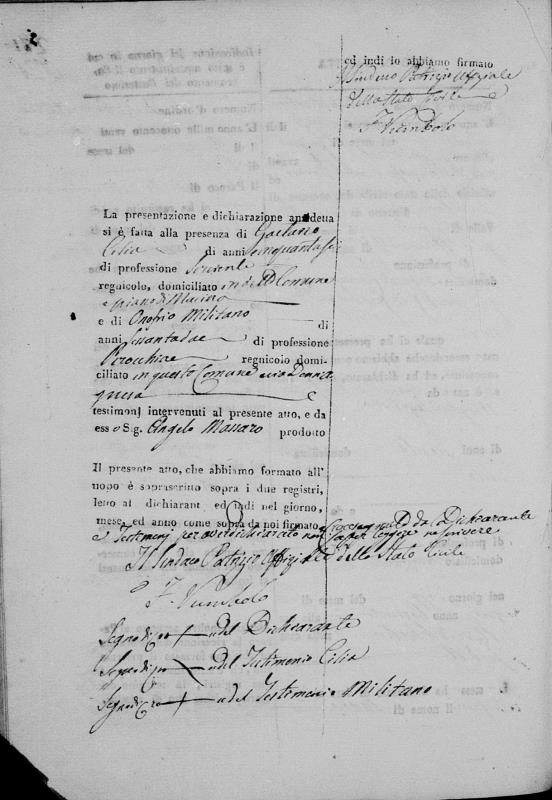 ed indi lo abbiamo firmato
Il Sindaco Patrizio Uffiziale
dello Stato Civile
La presentazione e dichiarazione anzidetta
si è fatta alla presenza di Gaetano
Cilia di anni cinquantasei
di professione
regnicolo, domiciliato in d.º Comune
e piano di
e di Onofrio Militano di
anni di professione
regnicolo domi-
ciliato in questo Comune via Donna
e
testimonj intervenuti al presente atto, e da
esso Sig. Angelo Massaro prodotto
Il presente atto, che abbiamo formato all'
uopo è soprascritto sopra i due registri,
letto al dichiarant ed indi nel giorno,
mese, ed anno come sopra da noi firmato
e Testimonj per aver dichiarato non saper leggere ne scrivere
Il Sindaco Patrizio Uffiziale dello Stato Civile
Segno di + del Dichiarante
Segno di + del Testimonio Cilia
Segno di + del Testimonio Militano